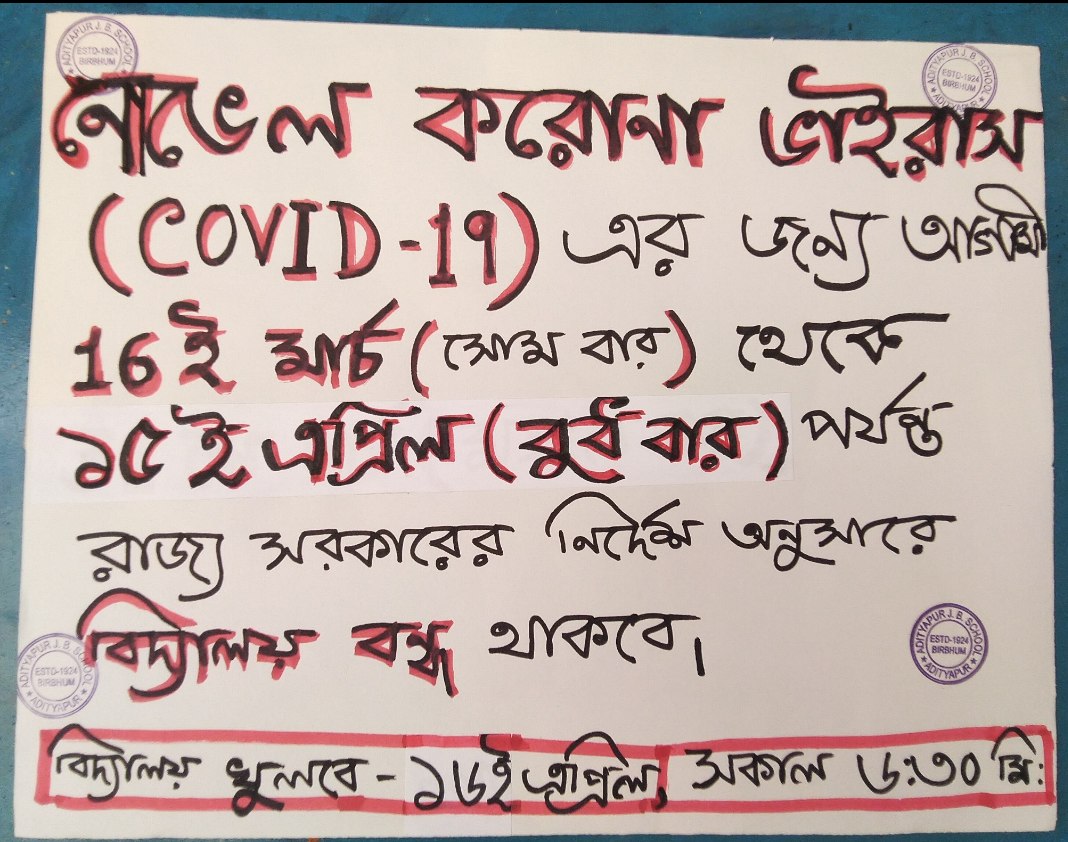 ADITYAPUR J. B. SCHOOL
ESTD-1924
BIRBHUM
ADITYAPUR J. B. SCHOOL
ESTD-1924
BIRBHUM
ADITYAPUR
নোভেল করোনা ভাইরাস
(COVID-19) এর জন্য আগামী
16ই মার্চ (সোমবার) থেকে
১৫ই এপ্রিল (বুধবার) পর্যন্ত
রাজ্য সরকারের নির্দেশ অনুসারে
বিদ্যালয় বন্ধ থাকবে।
ADITYAPUR J. B. SCHOOL
ESTD-1924
BIRBHUM
ADITYAPUR
ADITYAPUR J. B. SCHOOL
ESTD-1924
BIRBHUM
ADITYAPUR
বিদ্যালয় খুলবে - ১৬ই এপ্রিল, সকাল ৬:৩০ মি: